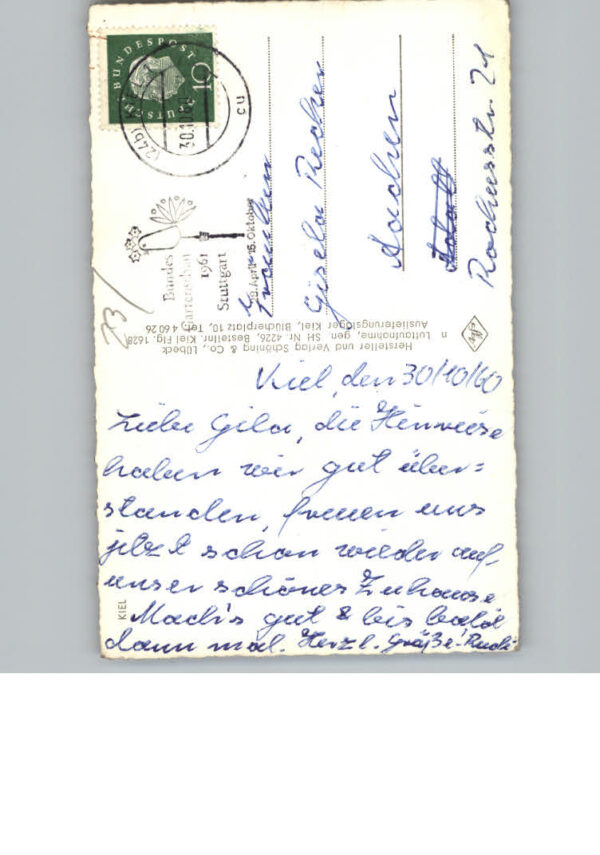 DEUTSCHE BUNDESPOST
10
(24b) KIEL 1
30.10.60
cu
Bundes
Gartenschau
1961
Stuttgart
April - 15. Oktober
Fräulein
Gisela Recher
Aachen
Rochusstr. 21
73/
Hersteller und Verlag Schöning & Co., Lübeck
n Luftaufnahme, gen. SH Nr. 4226, Bestellnr. Kiel Flg. 1628
Auslieferungslager Kiel, Blücherplatz 10, Tel. 4 60 26
KIEL
Kiel, den 30/10/60
Liebe Gila, die Hinreise
haben wir gut über=
standen, freuen uns
jetzt schon wieder auf
unser schönes Zuhause
Mach's gut & bis bald
dann mal. Herzl. Grüße-Rudi